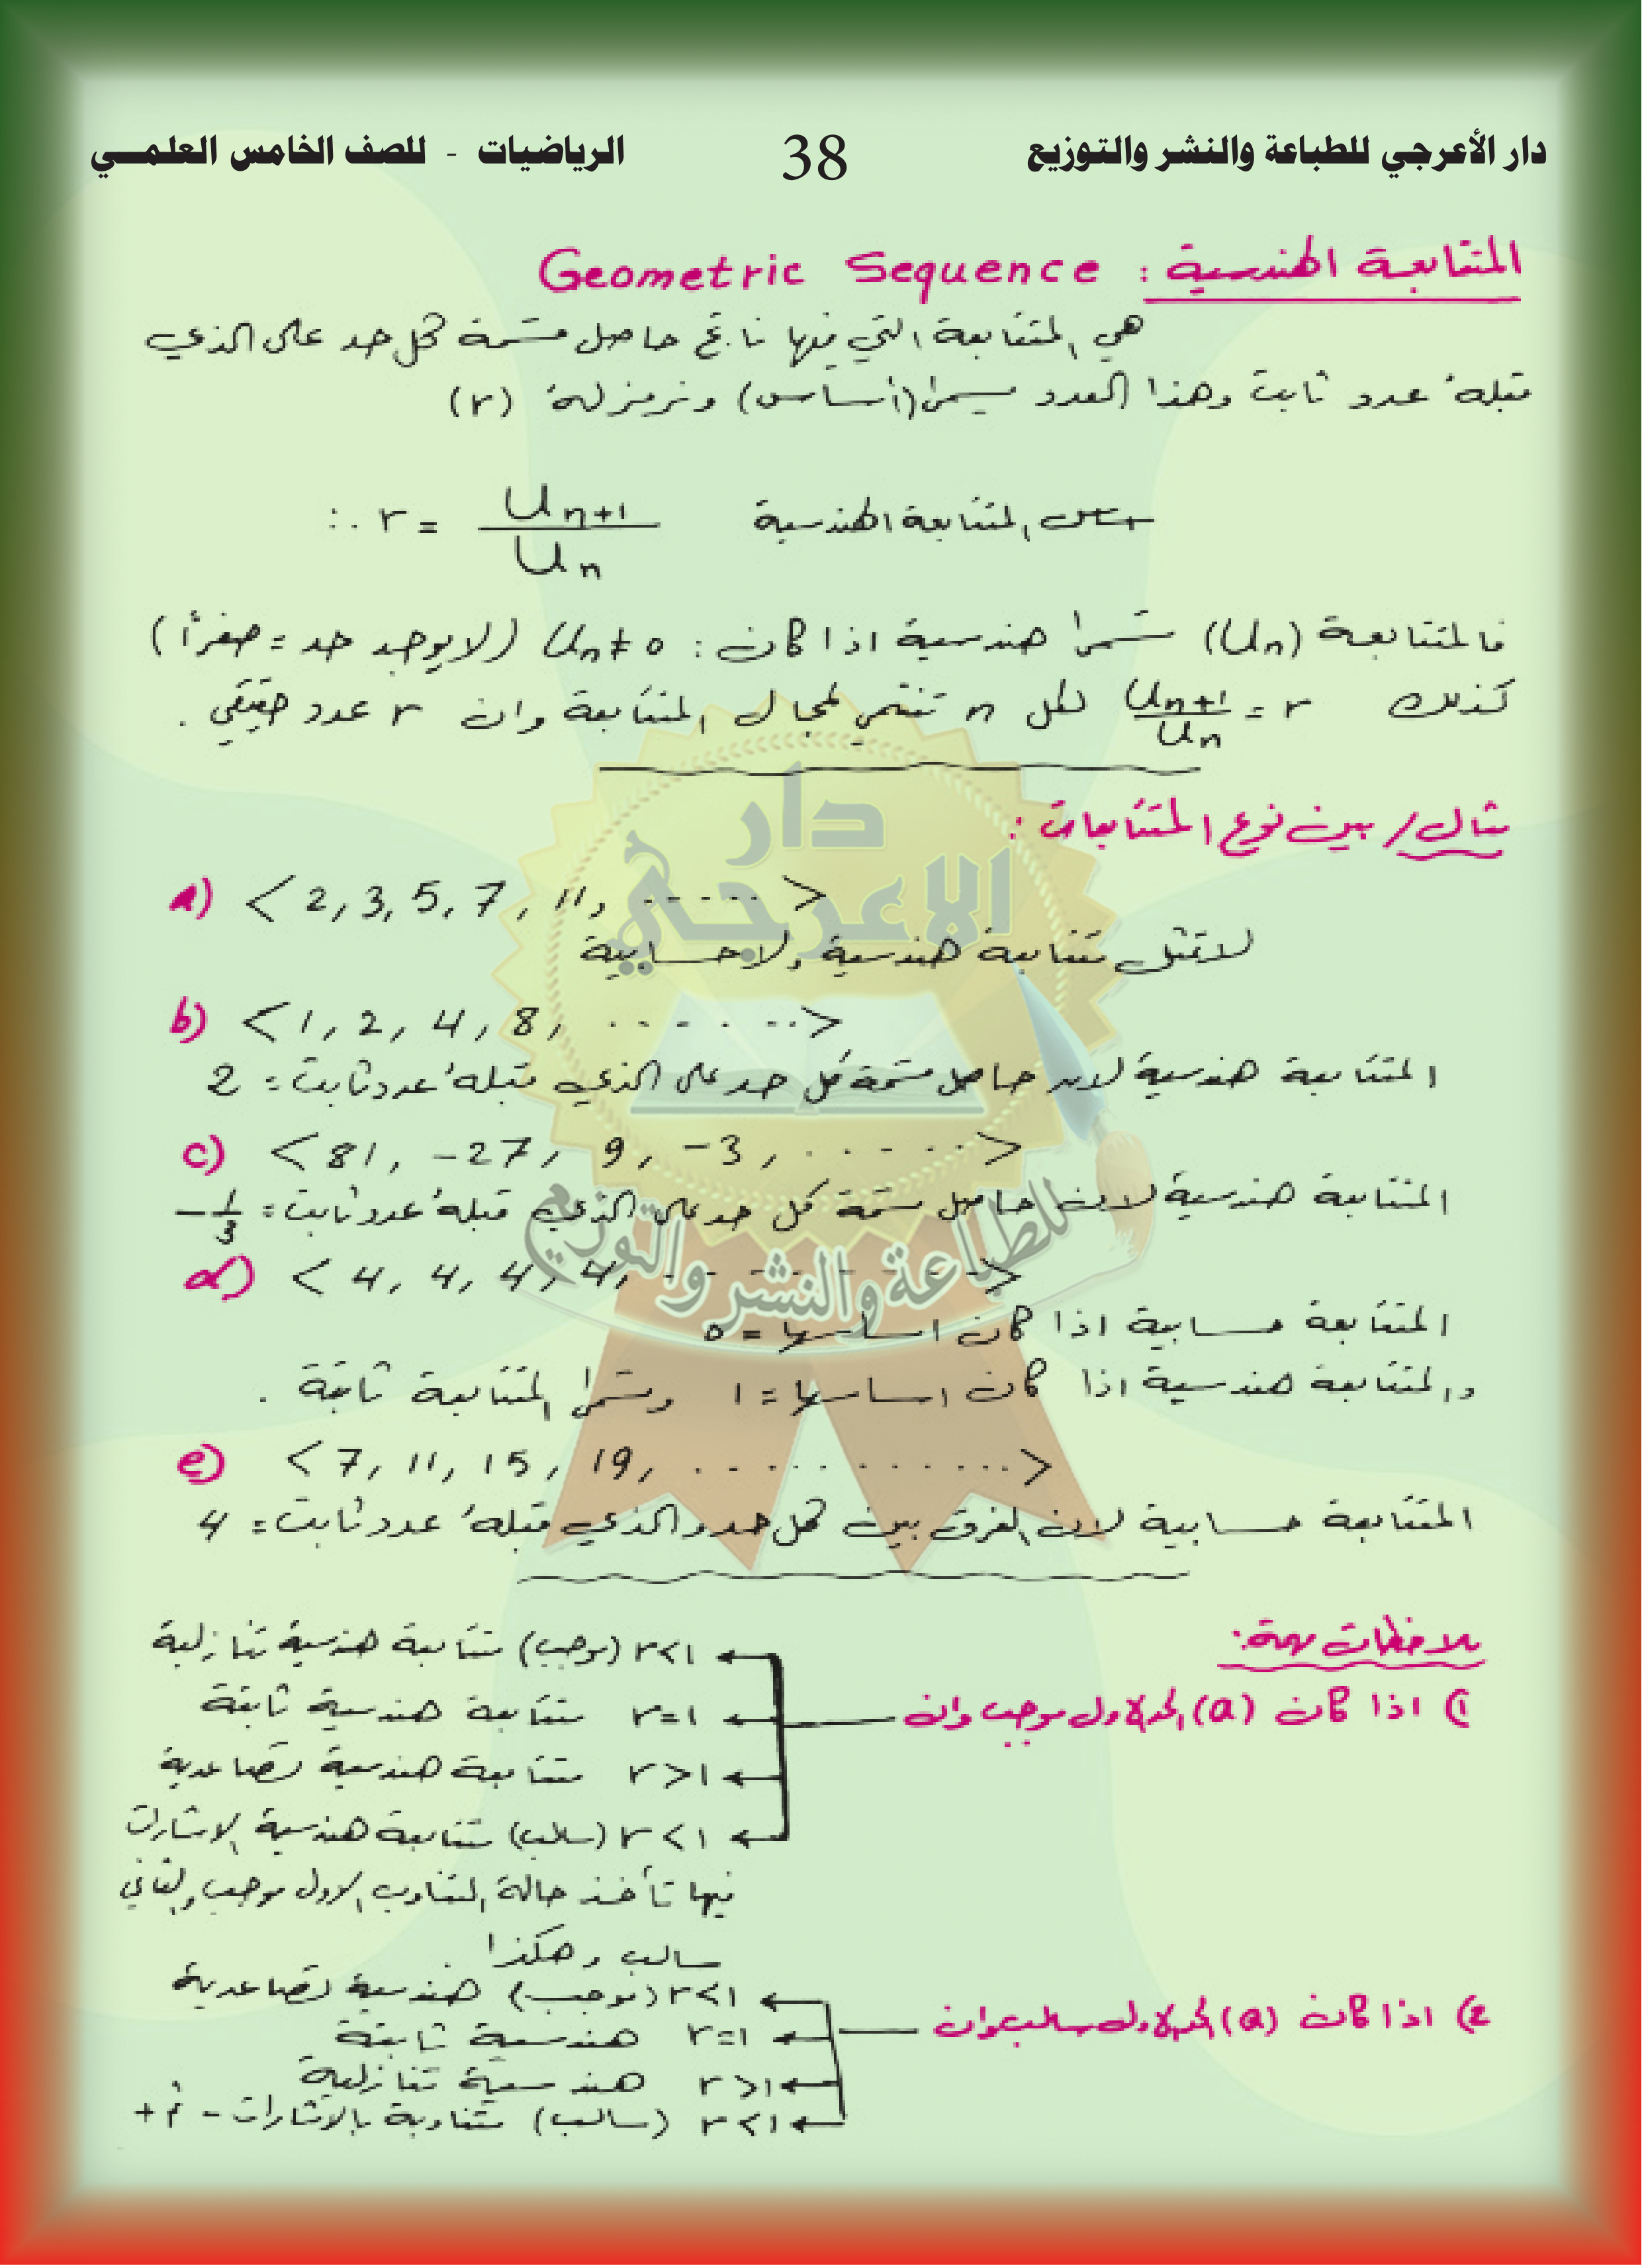 دار الأعرجي للطباعة والنشر والتوزيع 38 الرياضيات - للصف الخامس العلمي
المتتابعة الهندسية : Geometric Sequence
هي المتتابعة التي فيها ناتج حاصل قسمة كل حد على الذي
قبله عدد ثابت وهذا العدد يسمى (أساس) ونرمز له (r)
أساس المتتابعة الهندسية ∴ r = U_{n+1} / U_n
فالمتتابعة (Un) تسمى هندسية اذا كان : Un ≠ 0 (لا يوجد حد = صفراً)
كذلك U_{n+1} / U_n = r لكل n تنتمي لمجال المتتابعة وان r عدد حقيقي .
مثال / بين نوع المتتابعات :
a) < 2, 3, 5, 7, 11, ...... >
لا تمثل متتابعة هندسية ولا حسابية
b) < 1, 2, 4, 8, ....... >
المتتابعة هندسية لان حاصل قسمة كل حد على الذي قبله عدد ثابت = 2
c) < 81, -27, 9, -3, ...... >
المتتابعة هندسية لان حاصل قسمة كل حد على الذي قبله عدد ثابت = -1/3
d) < 4, 4, 4, 4, ........ >
المتتابعة حسابية اذا كان اساسها = 0
والمتتابعة هندسية اذا كان اساسها = 1 وتسمى المتتابعة ثابتة .
e) < 7, 11, 15, 19, ............ >
المتتابعة حسابية لان الفرق بين كل حد والذي قبله عدد ثابت = 4
ملاحظات مهمة:
1) اذا كان (a) الحد الاول موجب وان
r<1 (موجب) متتابعة هندسية تنازلية
r=1 متتابعة هندسية ثابتة
r>1 متتابعة هندسية تصاعدية
r<1 (سالب) متتابعة هندسية الاشارات
فيها تأخذ حالة التناوب الاول موجب والثاني
سالب وهكذا
2) اذا كان (a) الحد الاول سالب وان
r<1 (موجب) هندسية تصاعدية
r=1 هندسية ثابتة
r>1 هندسية تنازلية
r<1 (سالب) متناوبة بالاشارات - ثم +
دار
الاعرجي
للطباعة والنشر والتوزيع